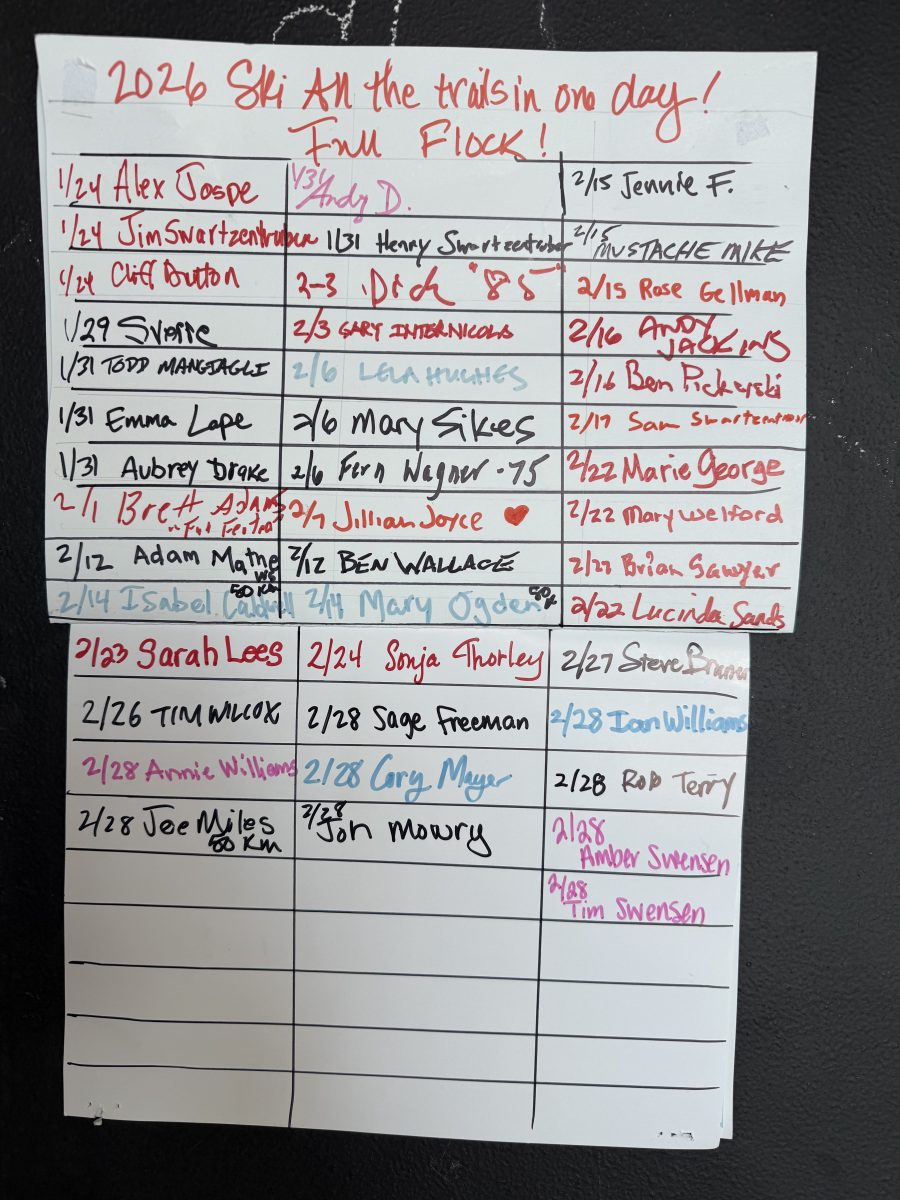 2026 Ski All the trails in one day!
Full Flock!
1/24 Alex Jospe
1/31 Andy D.
2/15 Jennie F.
1/24 Jim Swartzentruber
1/31 Henry Swartzentruber
2/15 MUSTACHE MIKE
1/24 Cliff Button
2-3 Dick "85"
2/15 Rose Gellman
1/29 Sverre
2/3 GARY INTERNICOLA
2/16 ANDY JACKINS
1/31 TODD MANGIAGLI
2/6 LELA HUGHES
2/16 Ben Pickarski
1/31 Emma Lape
2/6 Mary Sikes
2/17 Sam Swartzentruber
1/31 Aubrey Drake
2/6 Fern Wagner - 75
2/22 Marie George
2/1 Brett Adams
2/7 Jillian Joyce ♥
2/22 Mary Welford
2/12 Adam Mathews
2/12 BEN WALLACE
2/22 Brian Sawyer
2/14 Isabel Caldwell 50 KM
2/14 Mary Ogden 50k
2/22 Lucinda Sands
2/23 Sarah Lees
2/24 Sonja Thorley
2/27 Steve
2/26 TIM WILCOX
2/28 Sage Freeman
2/28 Ian Williams
2/28 Annie Williams
2/28 Cary Meyer
2/28 ROB Terry
2/28 Joe Miles
50 KM
2/28
Jon Mowry
2/28
Amber Swensen
2/28
Tim Swensen